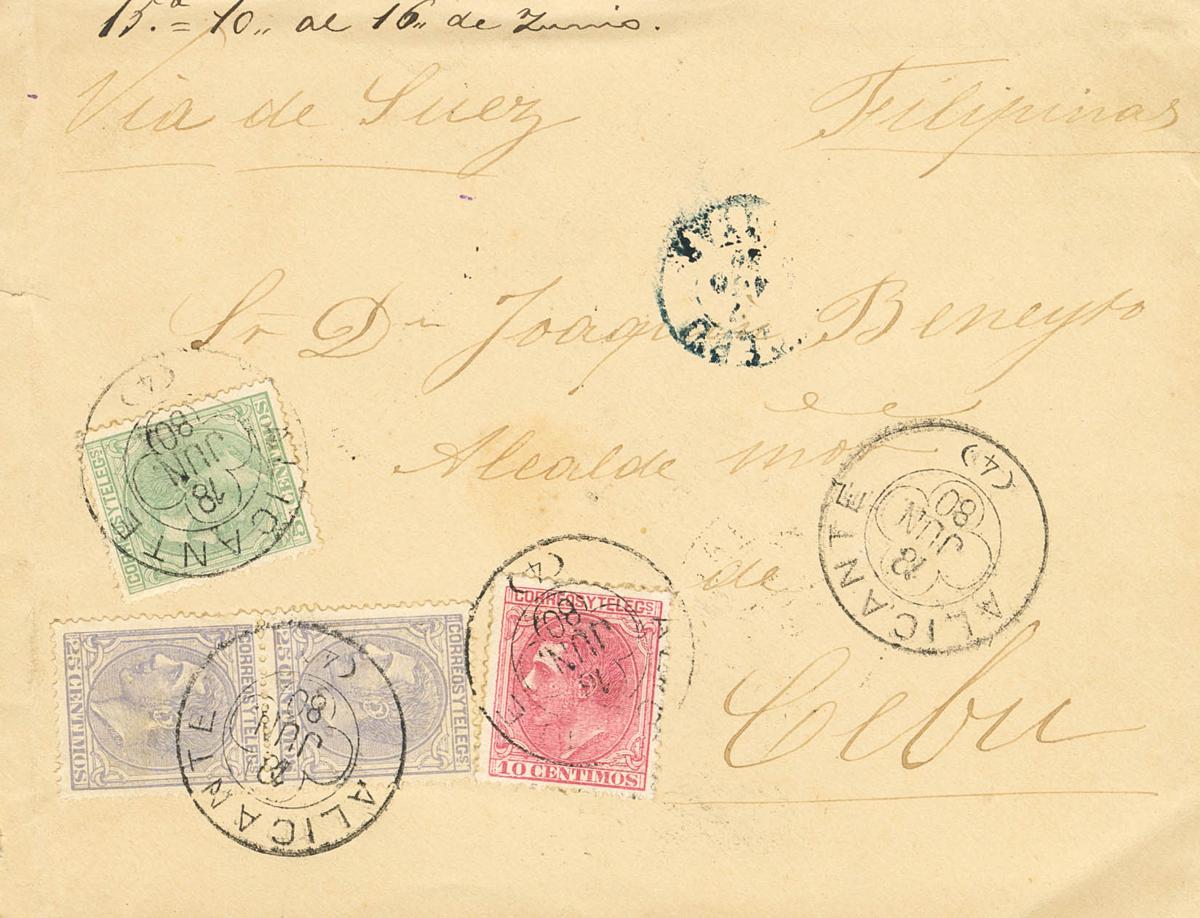 15.ª = 10,, al 16,, de Junio.
Via de Suez Filipinas
Sr Dn Joaquin Beneyto
Alcalde mor
de
Cebu
ALICANTE
(4)
18
JUN
80
5 CENTIMOS
CORREOS Y TELEGS
ALICANTE
(4)
JUN
80
25 CENTIMOS
CORREOS Y TELEGS
25 CENTIMOS
CORREOS Y TELEGS
ALICANTE
(4)
JUN
80
CORREOS Y TELEGS
10 CENTIMOS
(4)
JUN
80